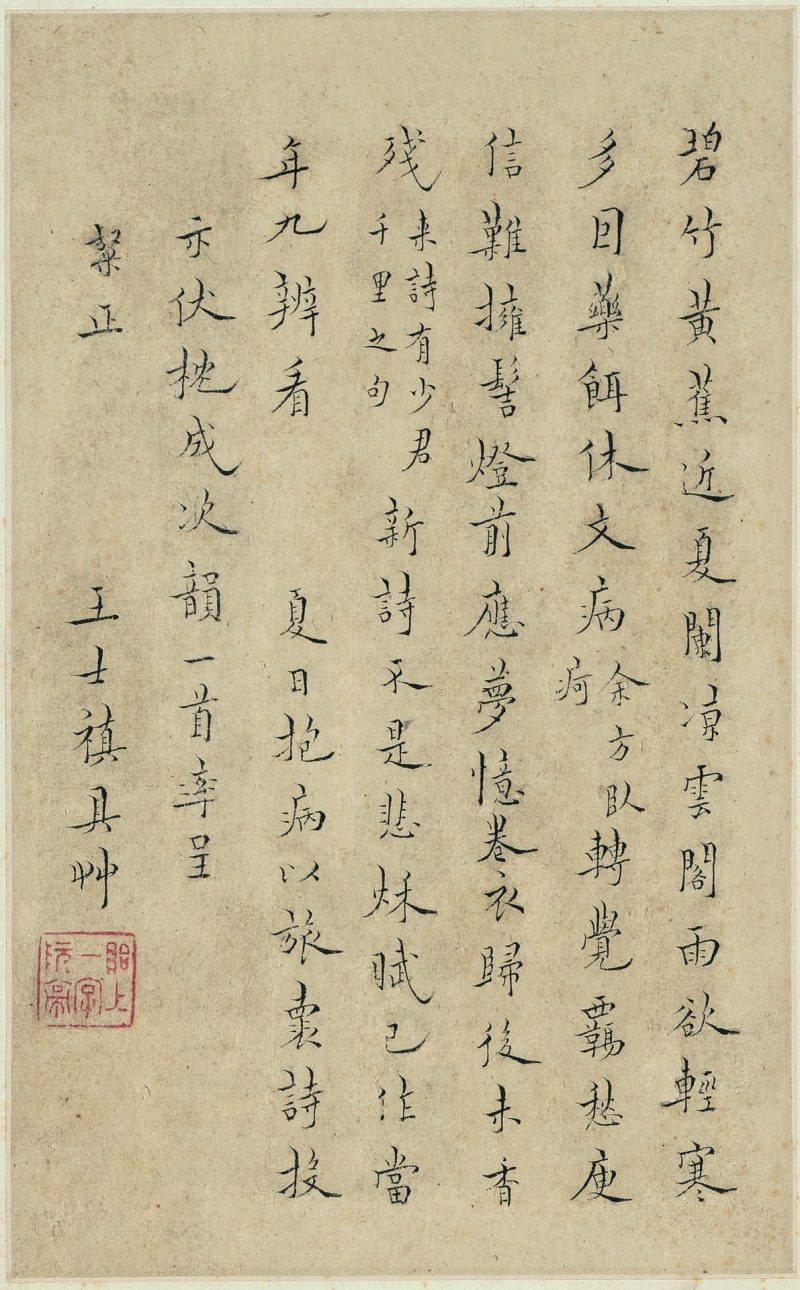 碧竹黃蕉近夏闌凉雲閣雨欲輕寒
多因藥餌休文病余方臥痾轉覺羈愁庾
信難擁髻燈前應夢憶卷衣歸後未香
殘来詩有少君千里之句新詩不是悲秌賦已作當
年九辨看 夏日抱病以旅詩投
亦伏枕成次韻一首率呈
粲正 王士禛具艸
貽上一字阮亭